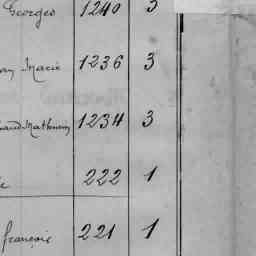 Georges 1240 3
an Marie 1236 3
aud Mathurin 1234 3
e 222 1
françois 221 1